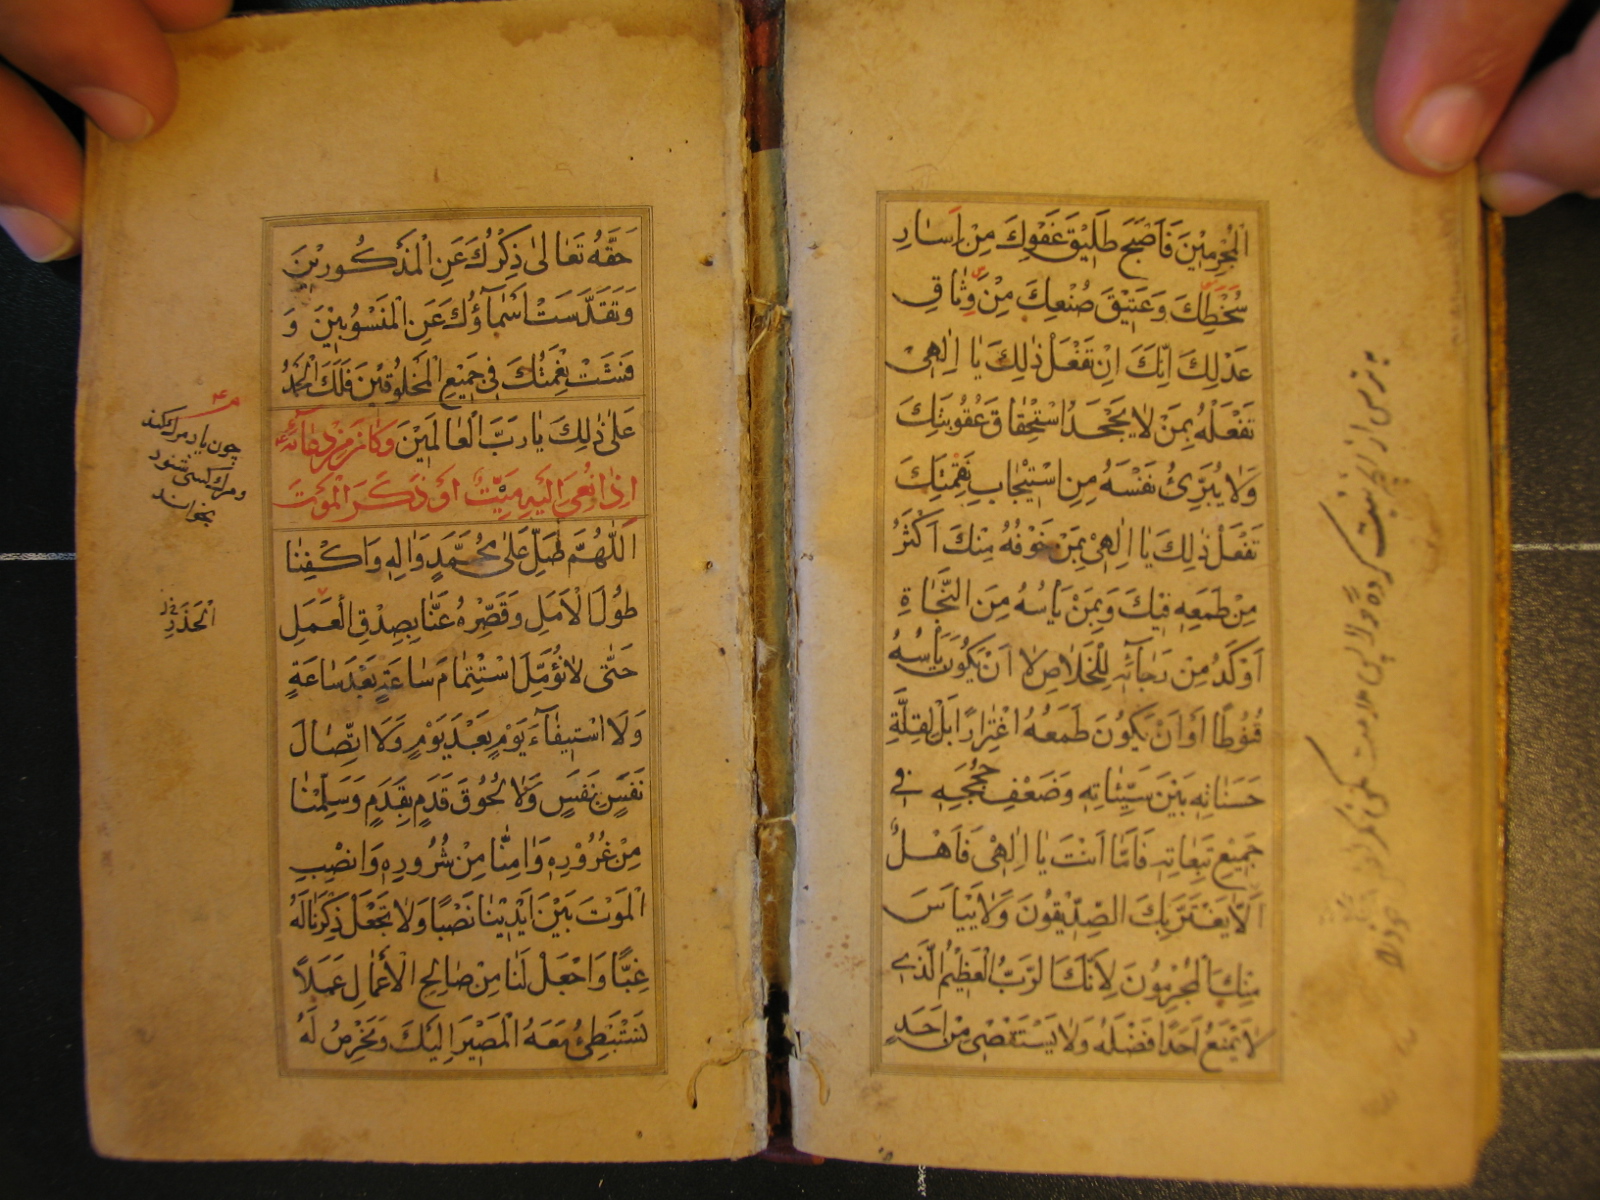 الْمُجْرِمِيْنَ فَاَصْبَحَ طَلِيْقَ عَفْوِكَ مِنْ اِسَارِ
سُخْطِكَ وَعَتِيْقَ صُنْعِكَ مِنْ وِثَاقِ
عَدْلِكَ اِنَّكَ اِنْ تَفْعَلْ ذٰلِكَ يَا اِلٰهِيْ
تَفْعَلْهُ بِمَنْ لَا يَجْحَدُ اسْتِحْقَاقَ عُقُوْبَتِكَ
وَلَا يُبَرِّئُ نَفْسَهُ مِنِ اسْتِيْجَابِ نَقِمَتِكَ
تَفْعَلْ ذٰلِكَ يَا اِلٰهِيْ بِمَنْ خَوْفُهُ مِنْكَ اَكْثَرُ
مِنْ طَمَعِهِ فِيْكَ وَبِمَنْ يَاْسُهُ مِنَ النَّجَاةِ
اَوْكَدُ مِنْ رَجَآئِهِ لِلْخَلَاصِ لَا اَنْ يَكُوْنَ يَاْسُهُ
قُنُوْطًا اَوْ اَنْ يَكُوْنَ طَمَعُهُ اغْتِرَارًا بَلْ لِقِلَّةِ
حَسَنَاتِهِ بَيْنَ سَيِّئَاتِهِ وَضَعْفِ حُجَجِهِ فِي
جَمِيْعِ تَبِعَاتِهِ فَاَمَّا اَنْتَ يَا اِلٰهِيْ فَاَهْلٌ
اَلَّا يَغْتَرَّ بِكَ الصِّدِّيْقُوْنَ وَلَا يَيْاَسَ
مِنْكَ الْمُجْرِمُوْنَ لِاَنَّكَ الرَّبُّ الْعَظِيْمُ الَّذِيْ
لَا يَمْنَعُ اَحَدًا فَضْلَهُ وَلَا يَسْتَقْصِيْ مِنْ اَحَدٍ
حَقَّهُ تَعَالٰى ذِكْرُكَ عَنِ الْمَذْكُوْرِيْنَ
وَتَقَدَّسَتْ اَسْمَآؤُكَ عَنِ الْمَنْسُوْبِيْنَ وَ
فَشَتْ نِعْمَتُكَ فِيْ جَمِيْعِ الْمَخْلُوْقِيْنَ فَلَكَ الْحَمْدُ
عَلٰى ذٰلِكَ يَا رَبَّ الْعَالَمِيْنَ وَكَانَ مِنْ دُعَآئِهِ
اِذَا نُعِيَ اِلَيْهِ مَيِّتٌ اَوْ ذَكَرَ الْمَوْتَ
اَللّٰهُمَّ صَلِّ عَلٰى مُحَمَّدٍ وَاٰلِهِ وَاكْفِنَا
طُوْلَ الْاَمَلِ وَقَصِّرْهُ عَنَّا بِصِدْقِ الْعَمَلِ
حَتّٰى لَا نُؤَمِّلَ اسْتِتْمَامَ سَاعَةٍ بَعْدَ سَاعَةٍ
وَلَا اسْتِيْفَآءَ يَوْمٍ بَعْدَ يَوْمٍ وَلَا اتِّصَالَ
نَفَسٍ بِنَفَسٍ وَلَا لُحُوْقَ قَدَمٍ بِقَدَمٍ وَسَلِّمْنَا
مِنْ غُرُوْرِهِ وَاٰمِنَّا مِنْ شُرُوْرِهِ وَانْصِبِ
الْمَوْتَ بَيْنَ اَيْدِيْنَا نَصْبًا وَلَا تَجْعَلْ ذِكْرَنَا لَهُ
غِبًّا وَاجْعَلْ لَنَا مِنْ صَالِحِ الْاَعْمَالِ عَمَلًا
نَسْتَبْطِئُ مَعَهُ الْمَصِيْرَ اِلَيْكَ وَنَحْرِصُ لَهُ
چون ياد مرگ كند
و مرگ كسى شنود
بخواند